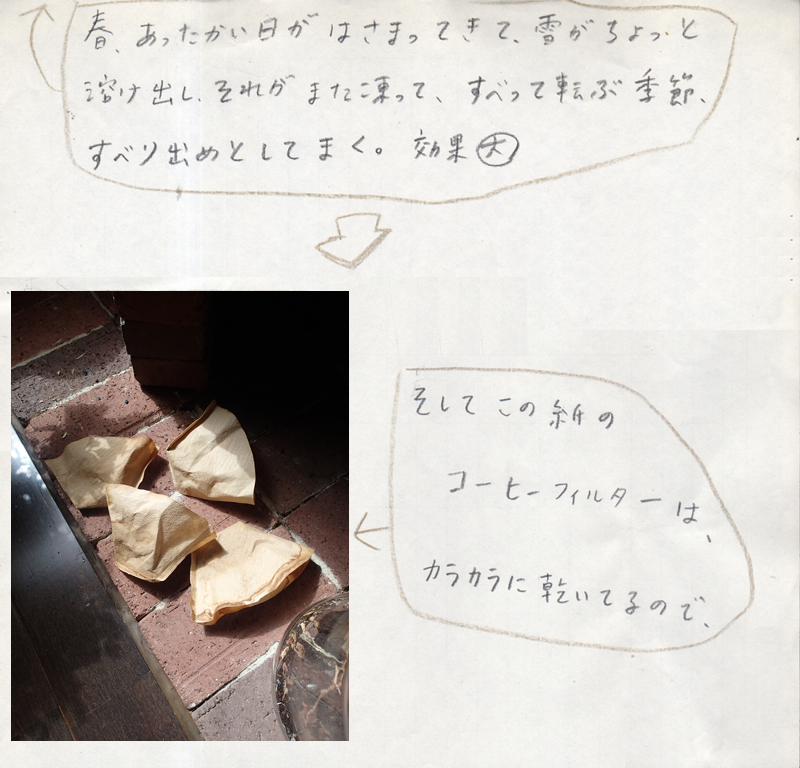 春、あったかい日が はさまってきて、雪がちょっと
溶け出し、それが また凍って、すべって転ぶ季節、
すべり出めとしてまく。効果大
そして この紙の
コーヒーフィルターは、
カラカラに乾いてるので、